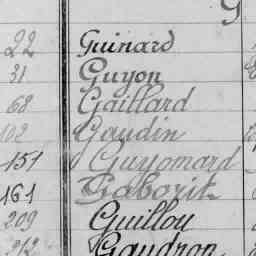 G
22 Guinard
31 Guyon
68 Gaillard
102 Gaudin
151 Guyomard
161 Gaborit
209 Guillou
212 Gaudron